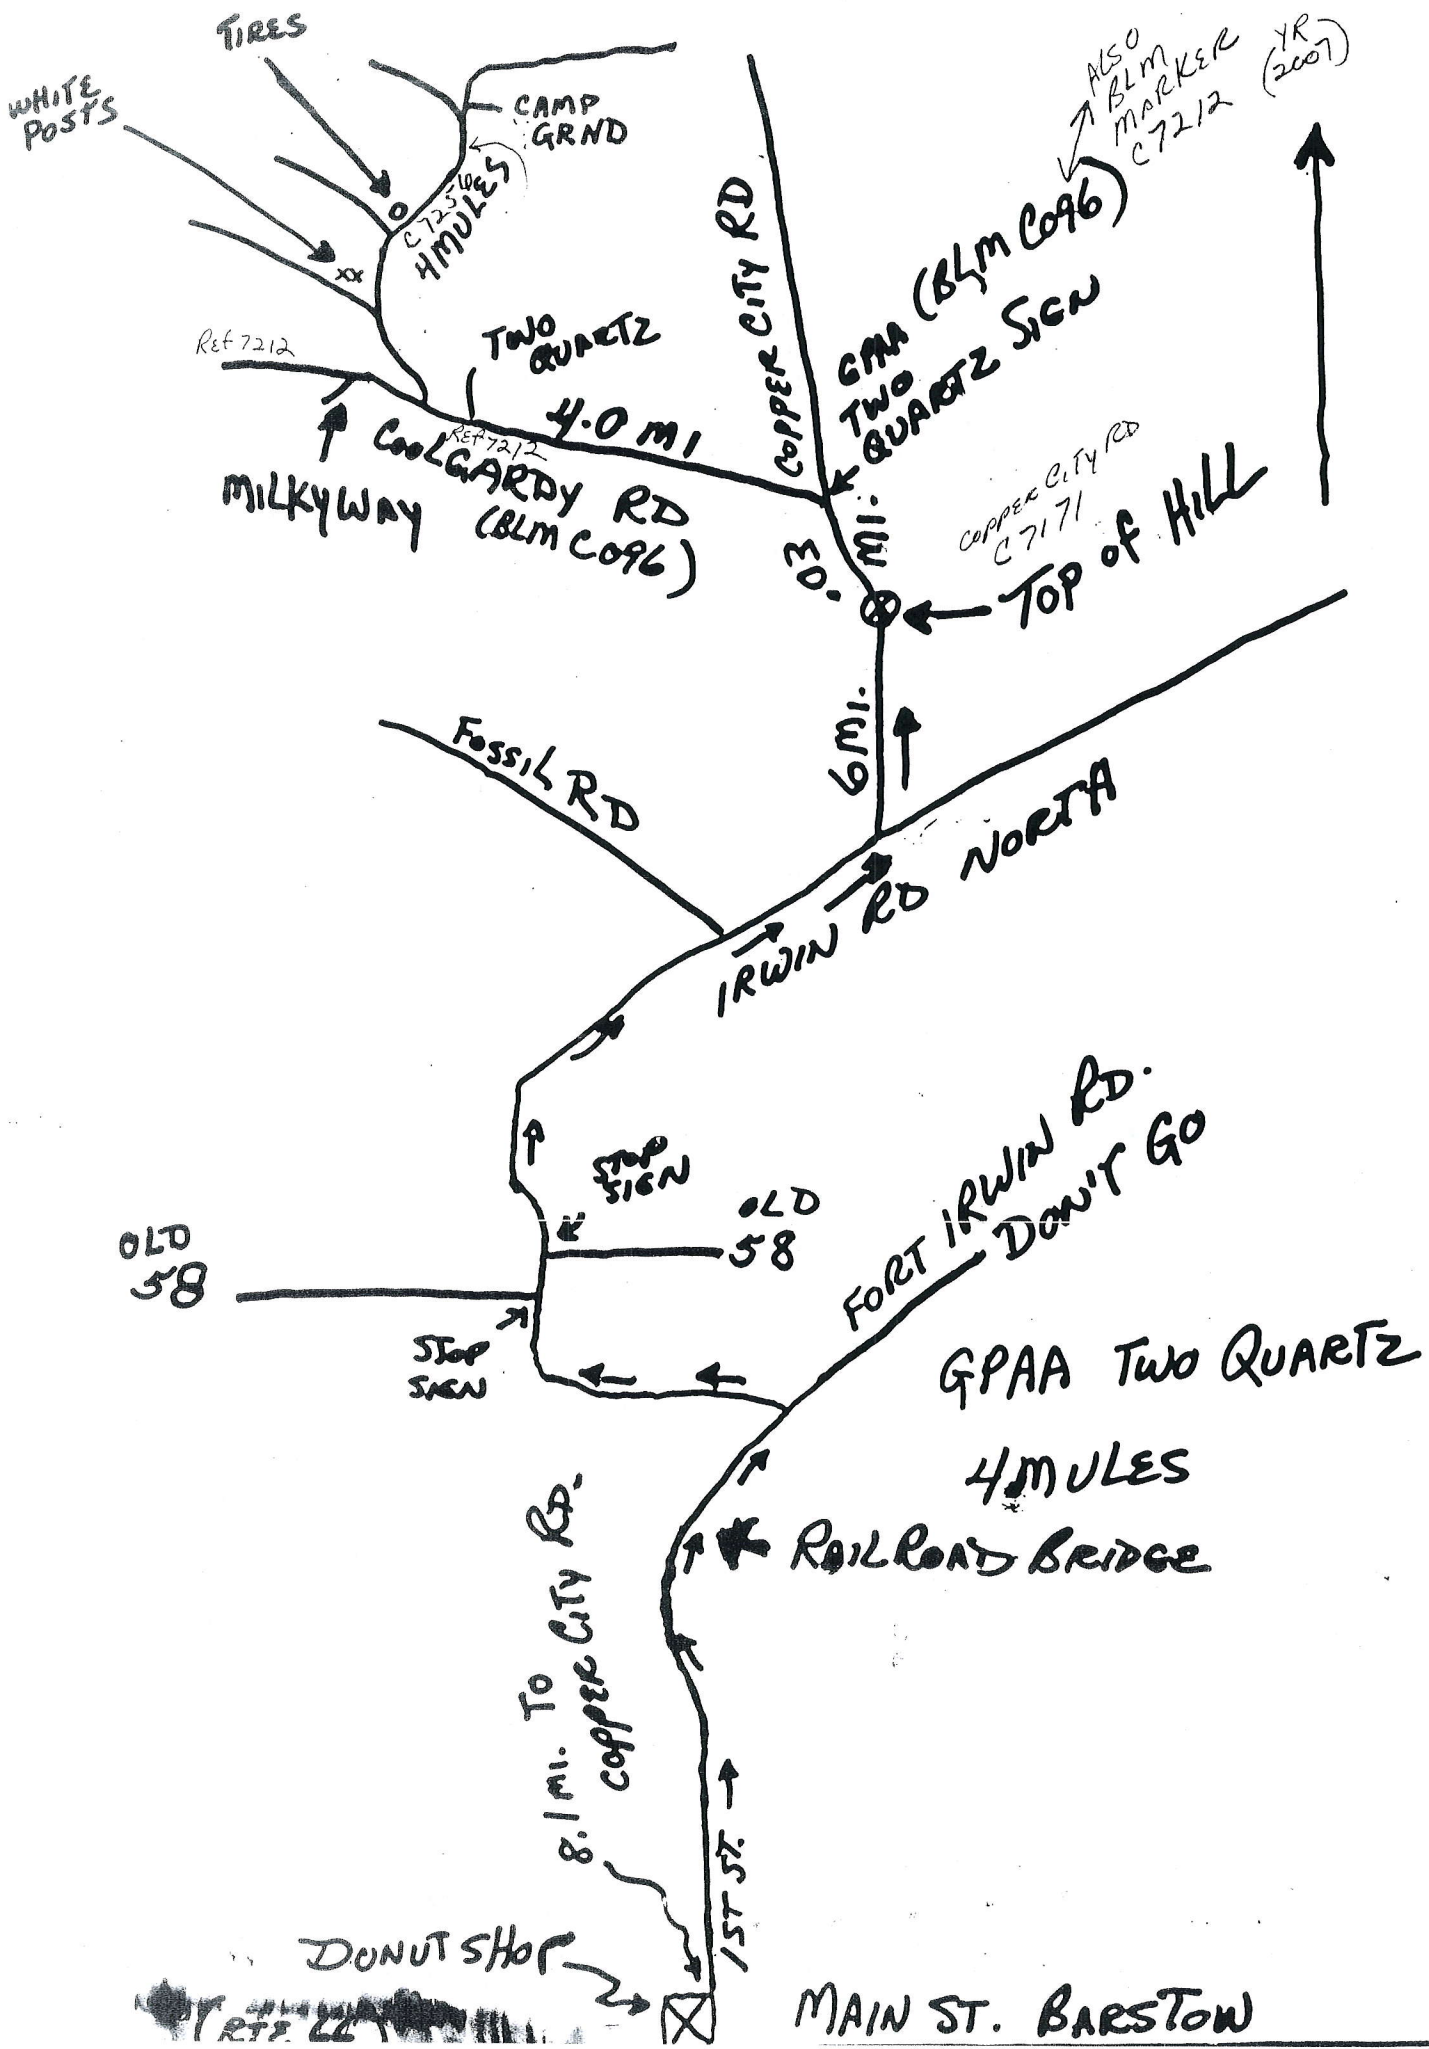 TIRES
WHITE
POSTS
CAMP
GRND
ALSO
BLM
MARKER
C7212
YR
(2007)
C7256
4MULES
XX
COPPER CITY RD
GPAA (BLM C096)
TWO
QUARTZ SIGN
Ref 7212
TWO
QUARTZ
4.0 MI
REF 7212
COOLGARDY RD
(BLM C096)
MILKYWAY
3 MI.
D.
COPPER CITY RD
C7171
TOP OF HILL
6 MI.
FOSSIL RD
IRWIN RD NORTH
STOP
SIGN
OLD
58
OLD
58
STOP
SIGN
FORT IRWIN RD.
DON'T GO
GPAA TWO QUARTZ
4 MULES
RAILROAD BRIDGE
8.1 MI. TO
COPPER CITY RD.
1ST ST.
DONUT SHOP
(RTE 66)
MAIN ST. BARSTOW